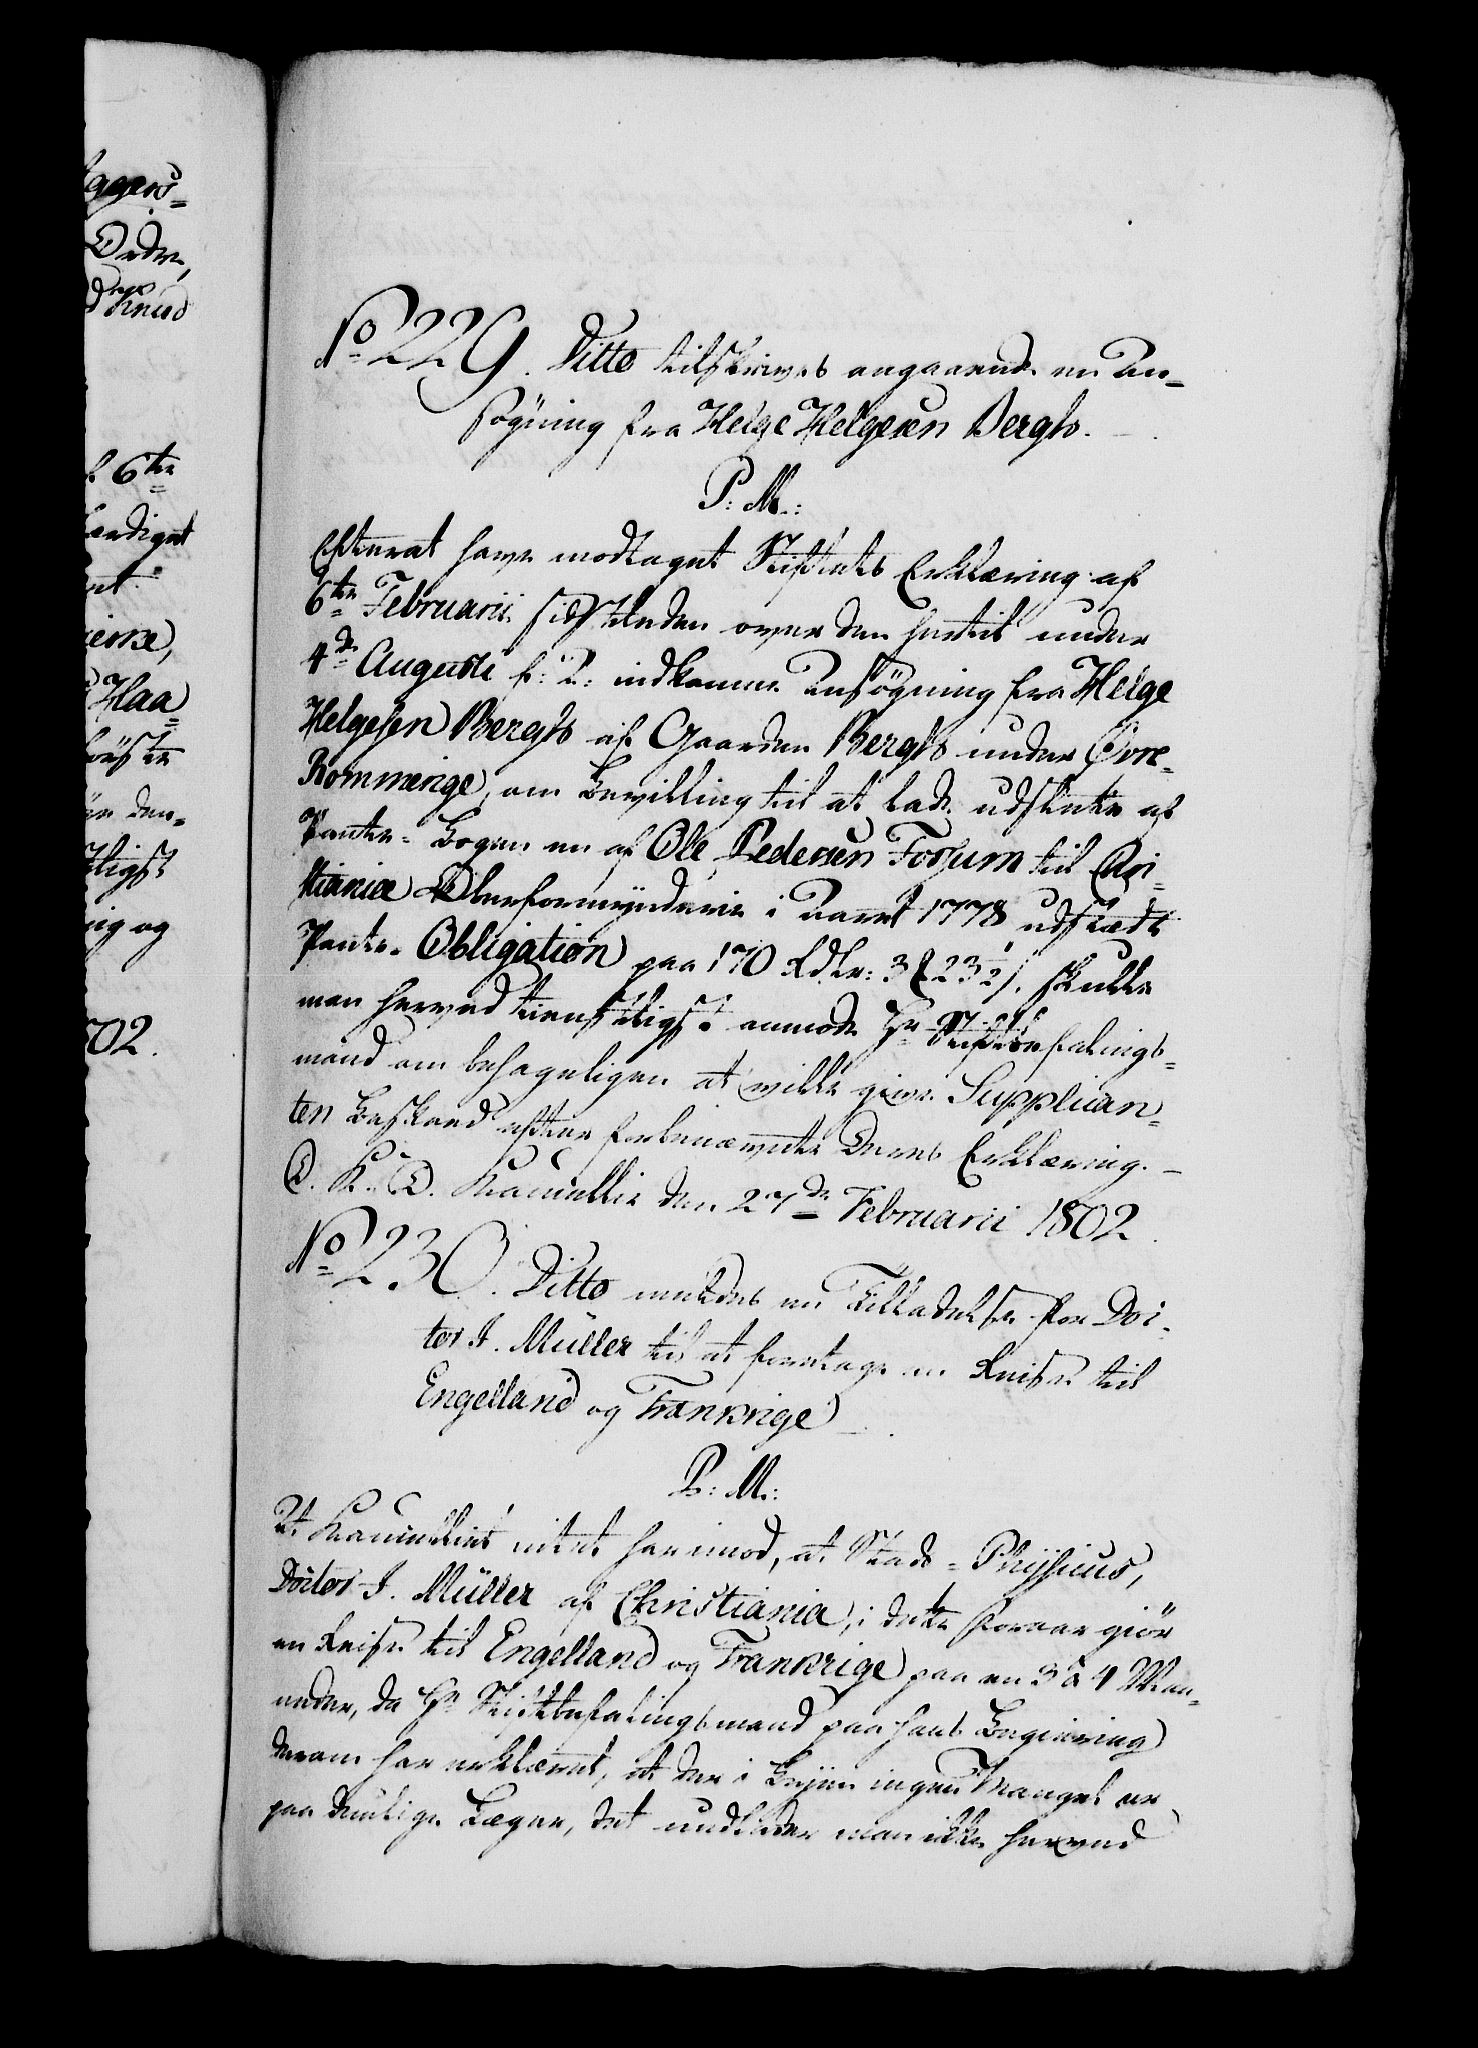 agens-
Ordre,
d Knud
6te
færdiget
et
ierne,
Haa-
den-
ligst
ig og
02.
No 229. Ditto tilskrives angaaende en An-
søgning fra Helge Helgesen Berghs.
P: M:
Efterat have modtaget Stiftets Erklæring af
6te Februarii sidstleden over den hertil under
4de Augusti f: A: indkomne Ansøgning fra Helge
Helgesen Berghs af Gaarden Berghs under Øvre-
Rommerige, om Bevilling til at lade udslette af
Pante-Bogen en af Ole Pedersen Fossum til Chri-
stianiæ Overformynderie i Aaret 1778 udstædt
Pante-Obligation paa 170 Rdlr: 3 23½ s, skulle
man herved tienstligst anmode Hr Stiftbefalings-
mand om behageligen at ville give Supplican-
ten Beskeed efter forbenævnte Deres Erklæring. -
D. K. D. Kancellie den 27de Februarii 1802.
No 230. Ditto meldes en Tilladelse for Doc-
tor J. Müller til at foretage en Reise til
Engelland og Frankrige
P: M:
At Kancelliet intet har imod, at Stads-Physicus,
Doctor J. Müller af Christiania, i dette Foraar giør
en Reise til Engelland og Frankrige paa en 3 à 4 Maa-
neder, da Hr Stiftbefalingsmand paa hans Begiering
derom har erklæret, at der i Byen ingen Mangel er
paa duelige Læger, det undlader man ikke herved